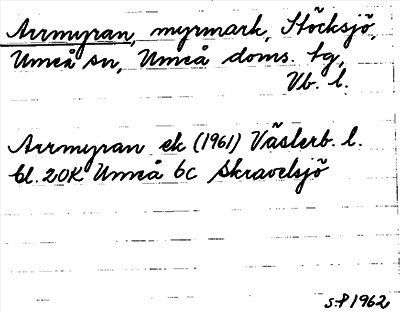 Arrmyran, myrmark, Stöcksjö,
Umeå sn, Umeå doms. tg,
Vb. l.
Arrmyran ek (1961) Västerb. l.
bl. 20K Umeå 6c Skravelsjö
s.f 1962